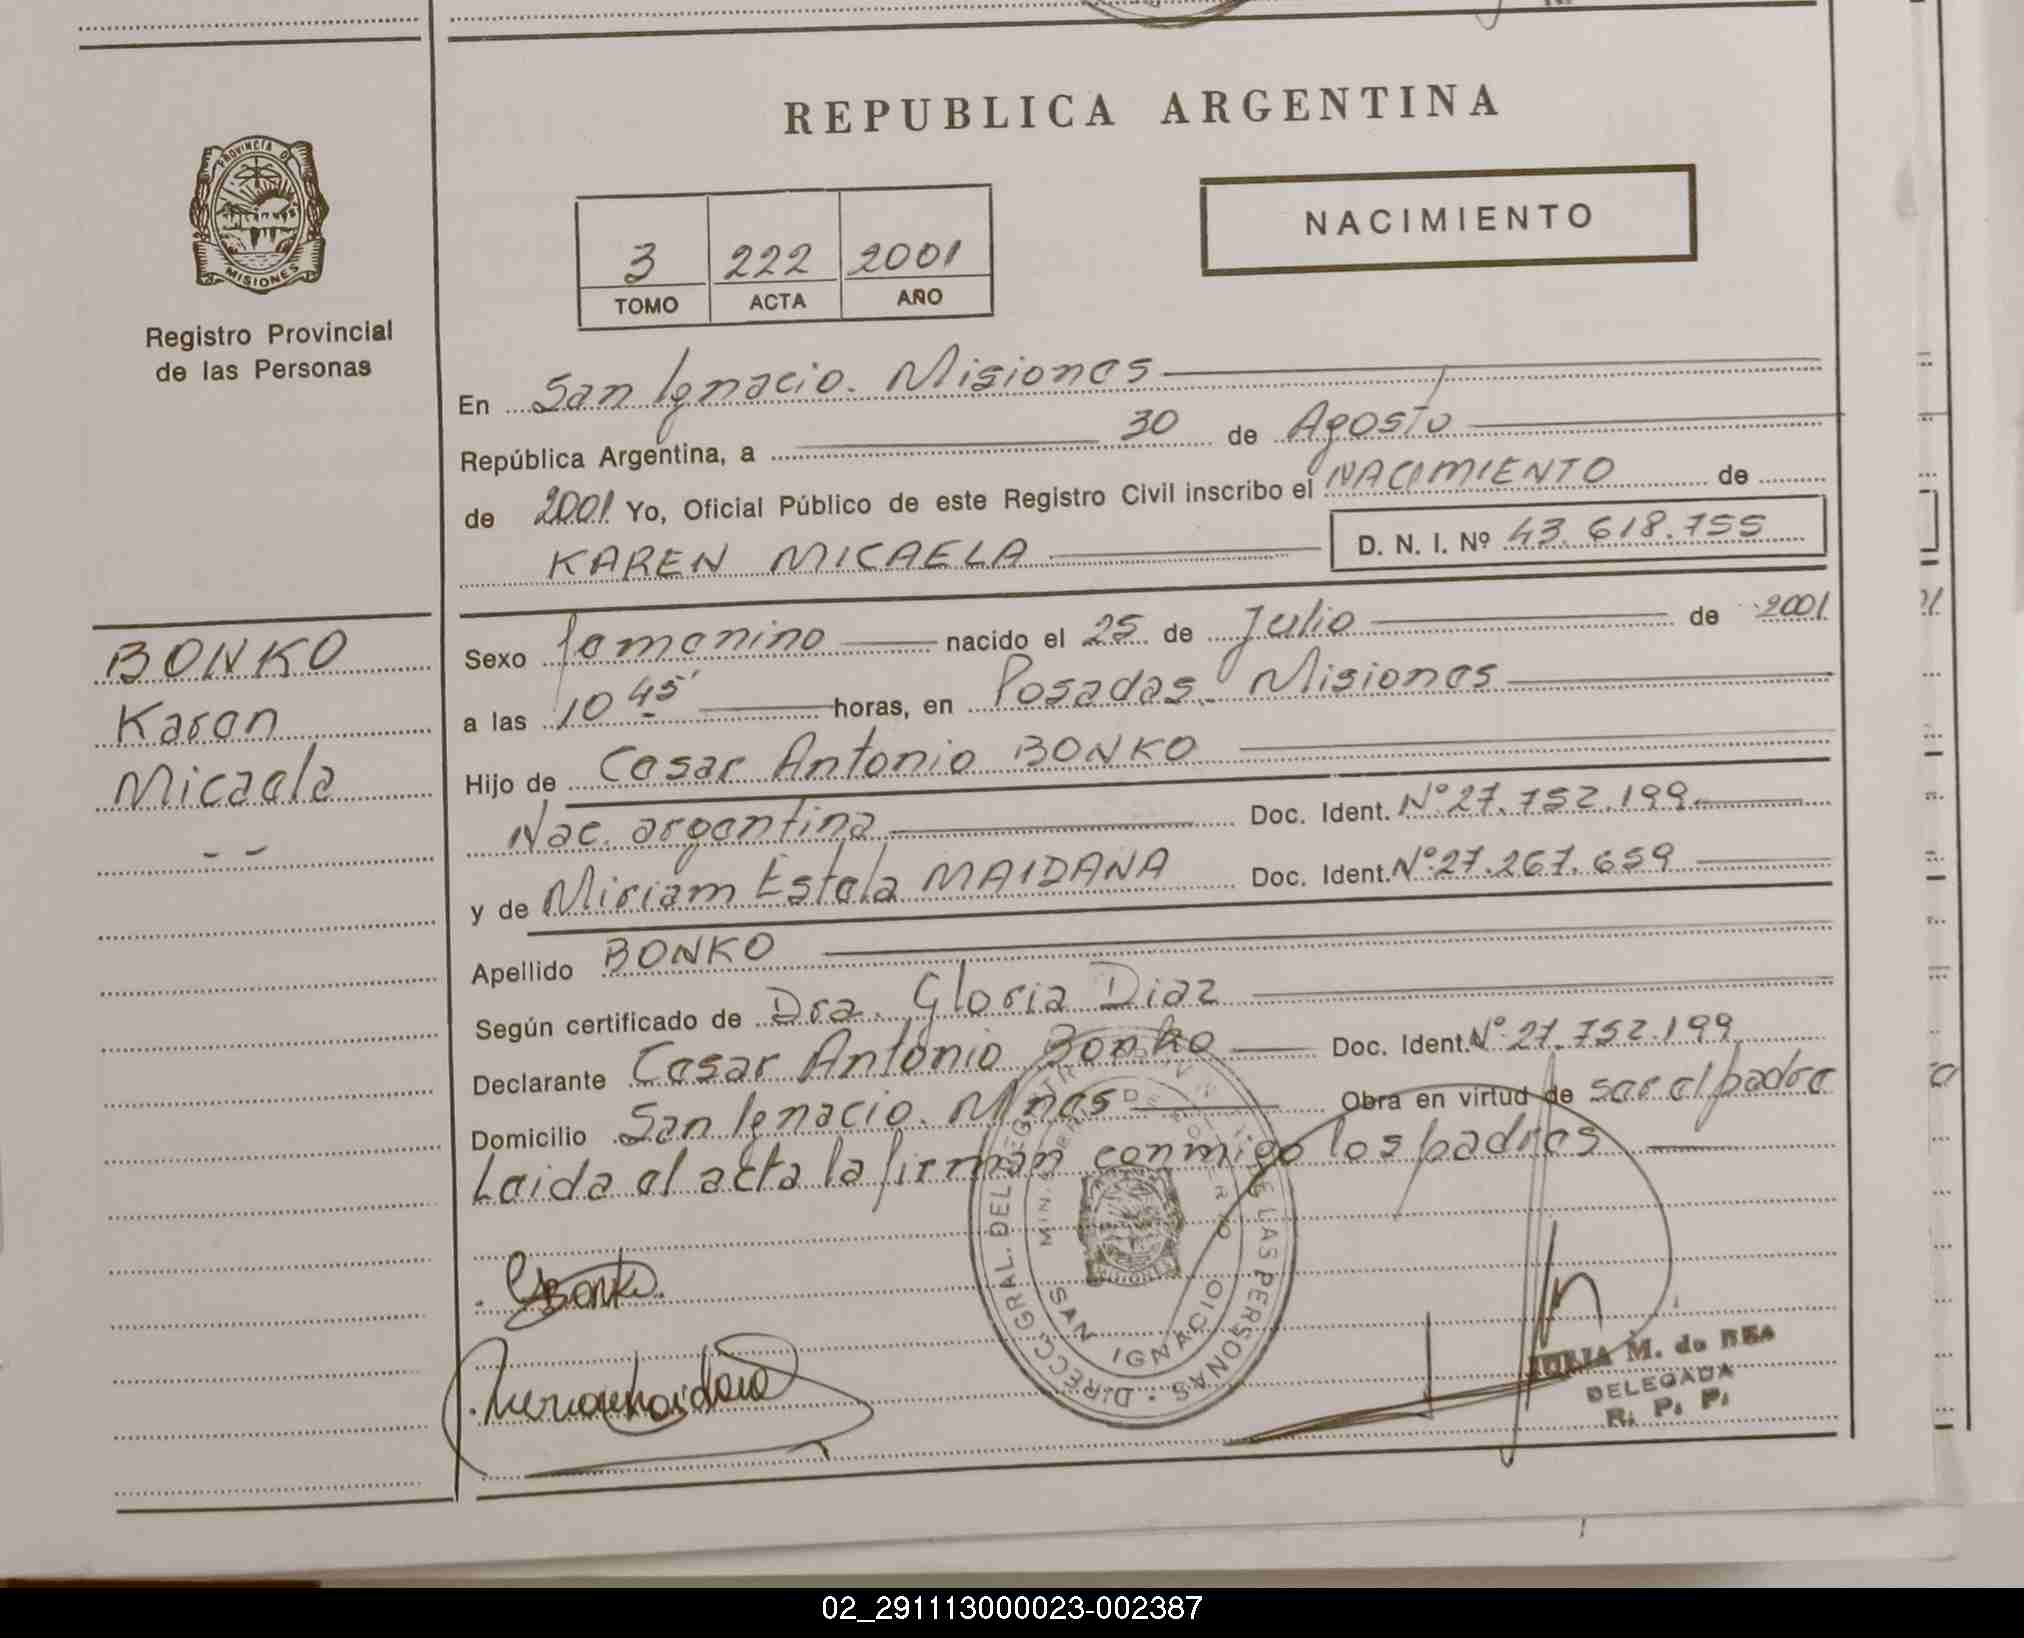 REPUBLICA ARGENTINA
PROVINCIA DE
MISIONES
Registro Provincial
de las Personas
NACIMIENTO
3 222 2001
TOMO ACTA AÑO
En San Ignacio. Misiones
República Argentina, a 30 de Agosto
de 2001 Yo, Oficial Público de este Registro Civil inscribo el NACIMIENTO de
KAREN MICAELA D. N. I. Nº 43.618.755
BONKO
Karen
Micaela
Sexo femenino nacido el 25 de Julio de 2001
a las 10 45' horas, en Posadas. Misiones
Hijo de Cesar Antonio BONKO
Nac. argentina Doc. Ident. Nº 27.752.199
y de Miriam Estela MAIDANA Doc. Ident. Nº 27.267.659
Apellido BONKO
Según certificado de Dra. Gloria Diaz
Declarante Cesar Antonio Bonko Doc. Ident. Nº 27.752.199
Domicilio San Ignacio. Mnes Obra en virtud de ser el padre
Leida el acta la firman conmigo los padres
DIRECC. GRAL. DEL REGISTRO DE LAS PERSONAS
SAN IGNACIO
MISIONES
Bonko
JULIA M. de REA
DELEGADA
R. P. P.
02_291113000023-002387